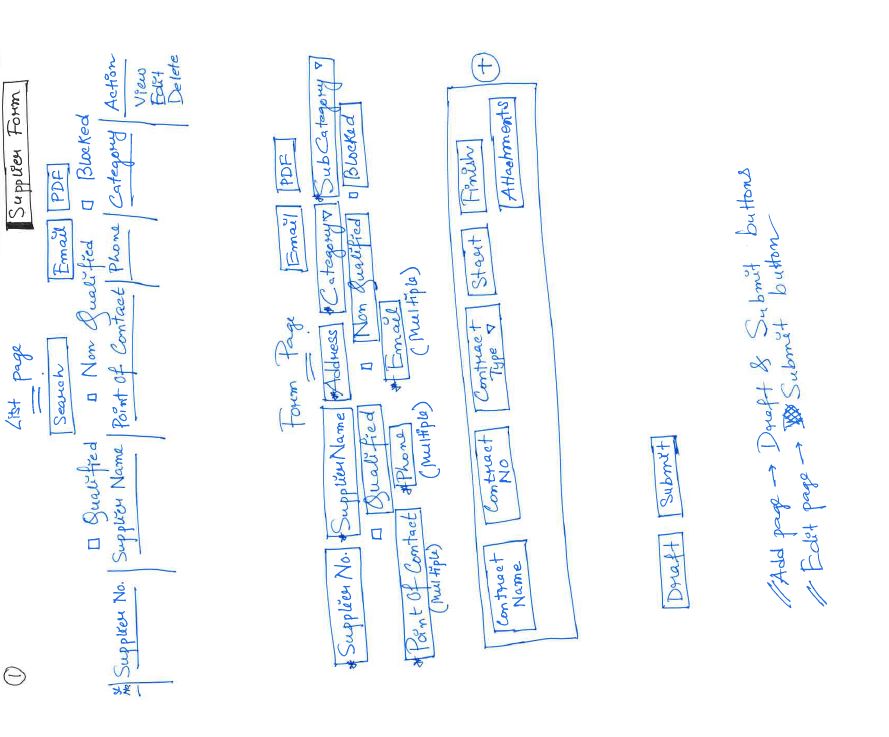 1 List page Supplier Form
Search Email PDF
Qualified Non Qualified Blocked
SL No Supplier No. Supplier Name Point Of Contact Phone Category Action
View
Edit
Delete
Form Page Email PDF
*Supplier No. *Supplier Name *Address *Category *SubCategory
Qualified Non Qualified Blocked
*Point Of Contact *Phone *Email
(Multiple) (Multiple) (Multiple)
Contract Name Contract No Contract Type Start Finish +
Attachments
Draft Submit
Add page → Draft & Submit buttons
Edit page → Submit button